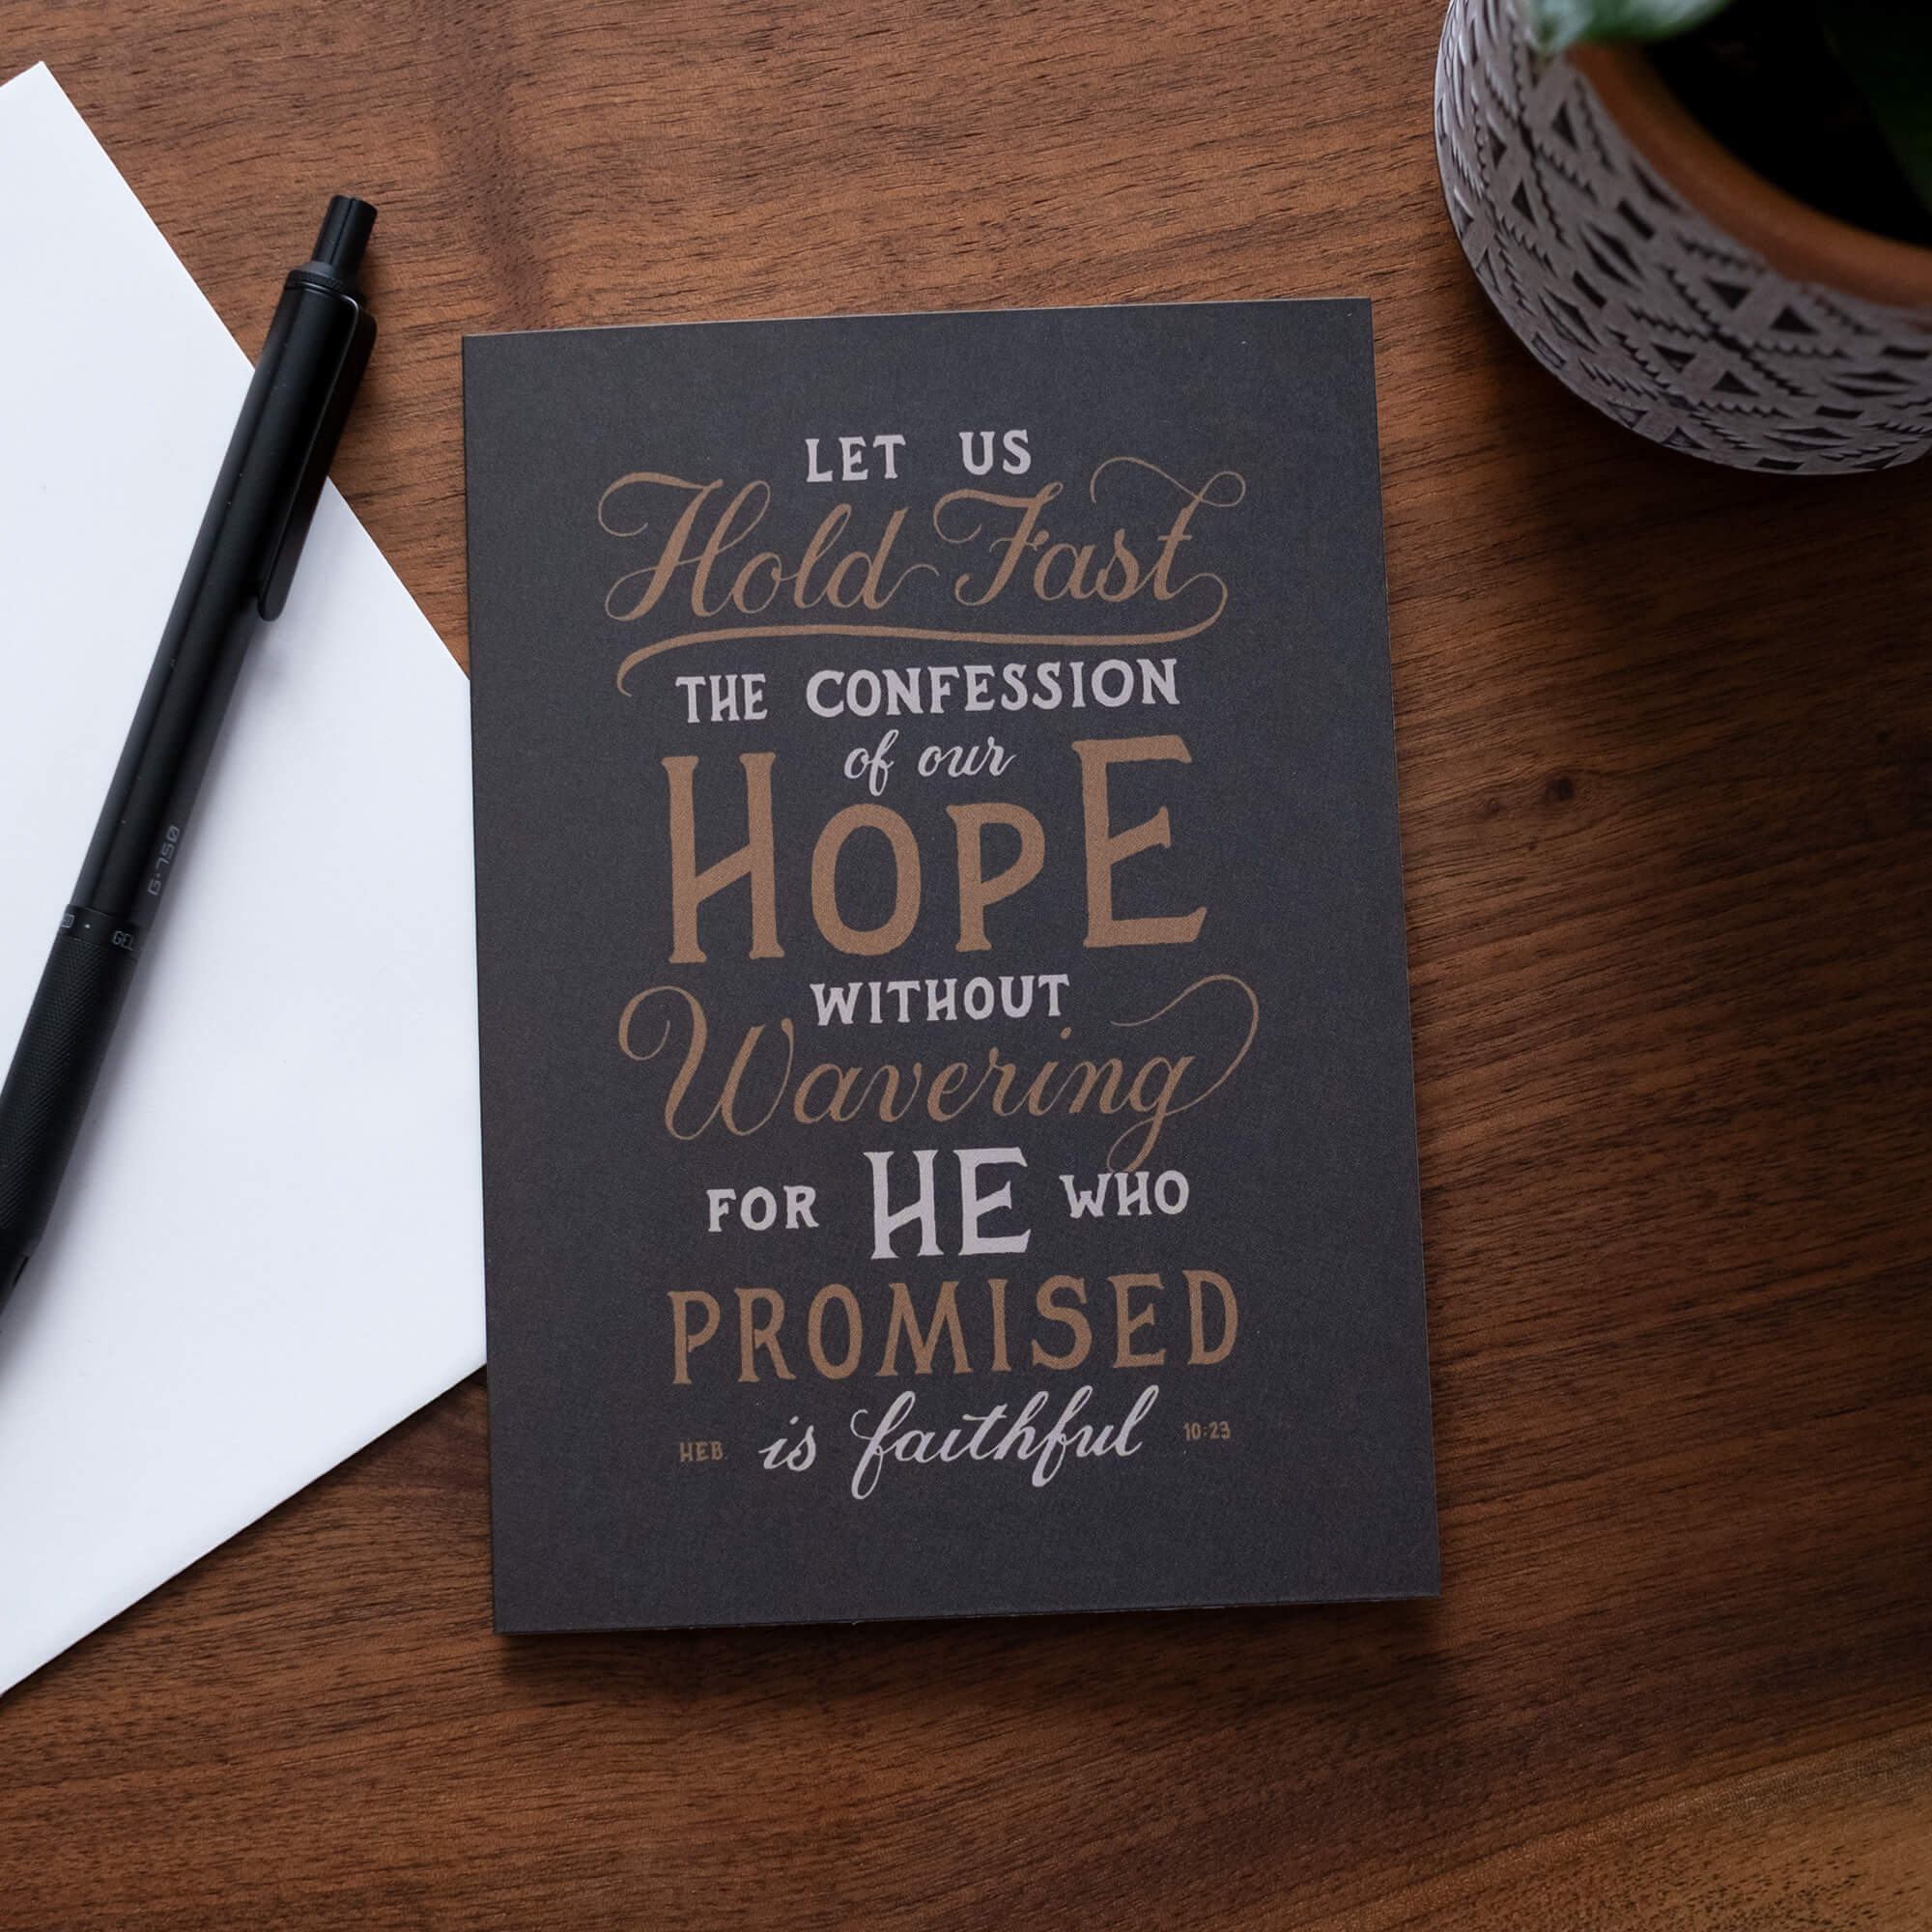 LET US
Hold Fast
THE CONFESSION
of our
HOPE
WITHOUT
Wavering
FOR HE WHO
PROMISED
HEB. is faithful 10:23
G-750
GEL